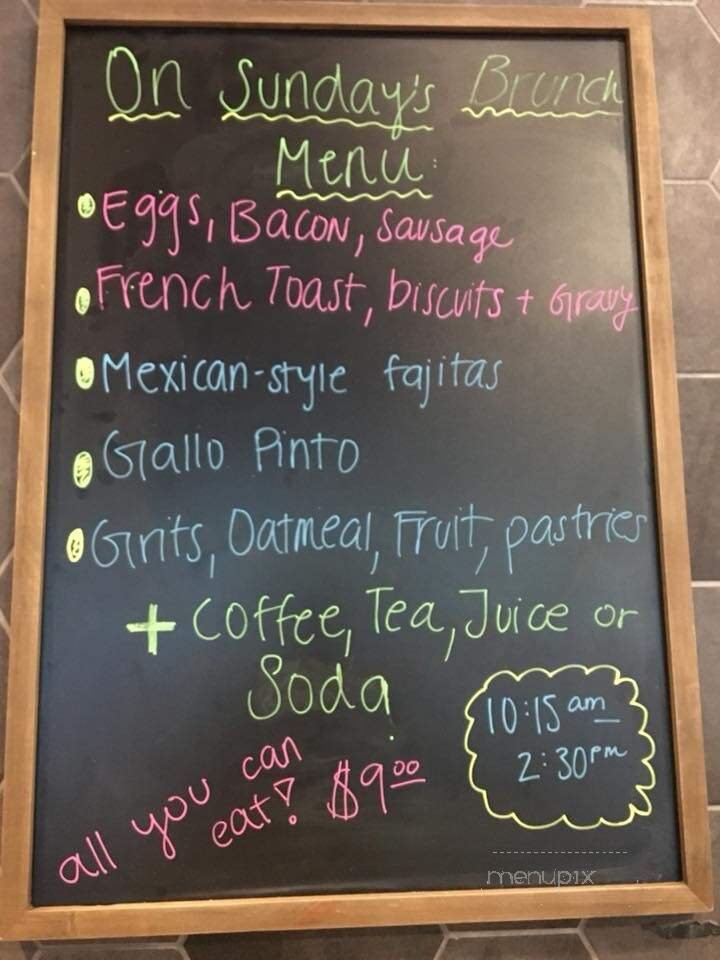 On Sunday's Brunch
Menu:
Eggs, Bacon, Sausage
French Toast, biscuits + Gravy
Mexican-style fajitas
Gallo Pinto
Grits, Oatmeal, Fruit, pastries
+ Coffee, Tea, Juice or
Soda
10:15 am
2:30 pm
all you can
eat! $9.00
menupix